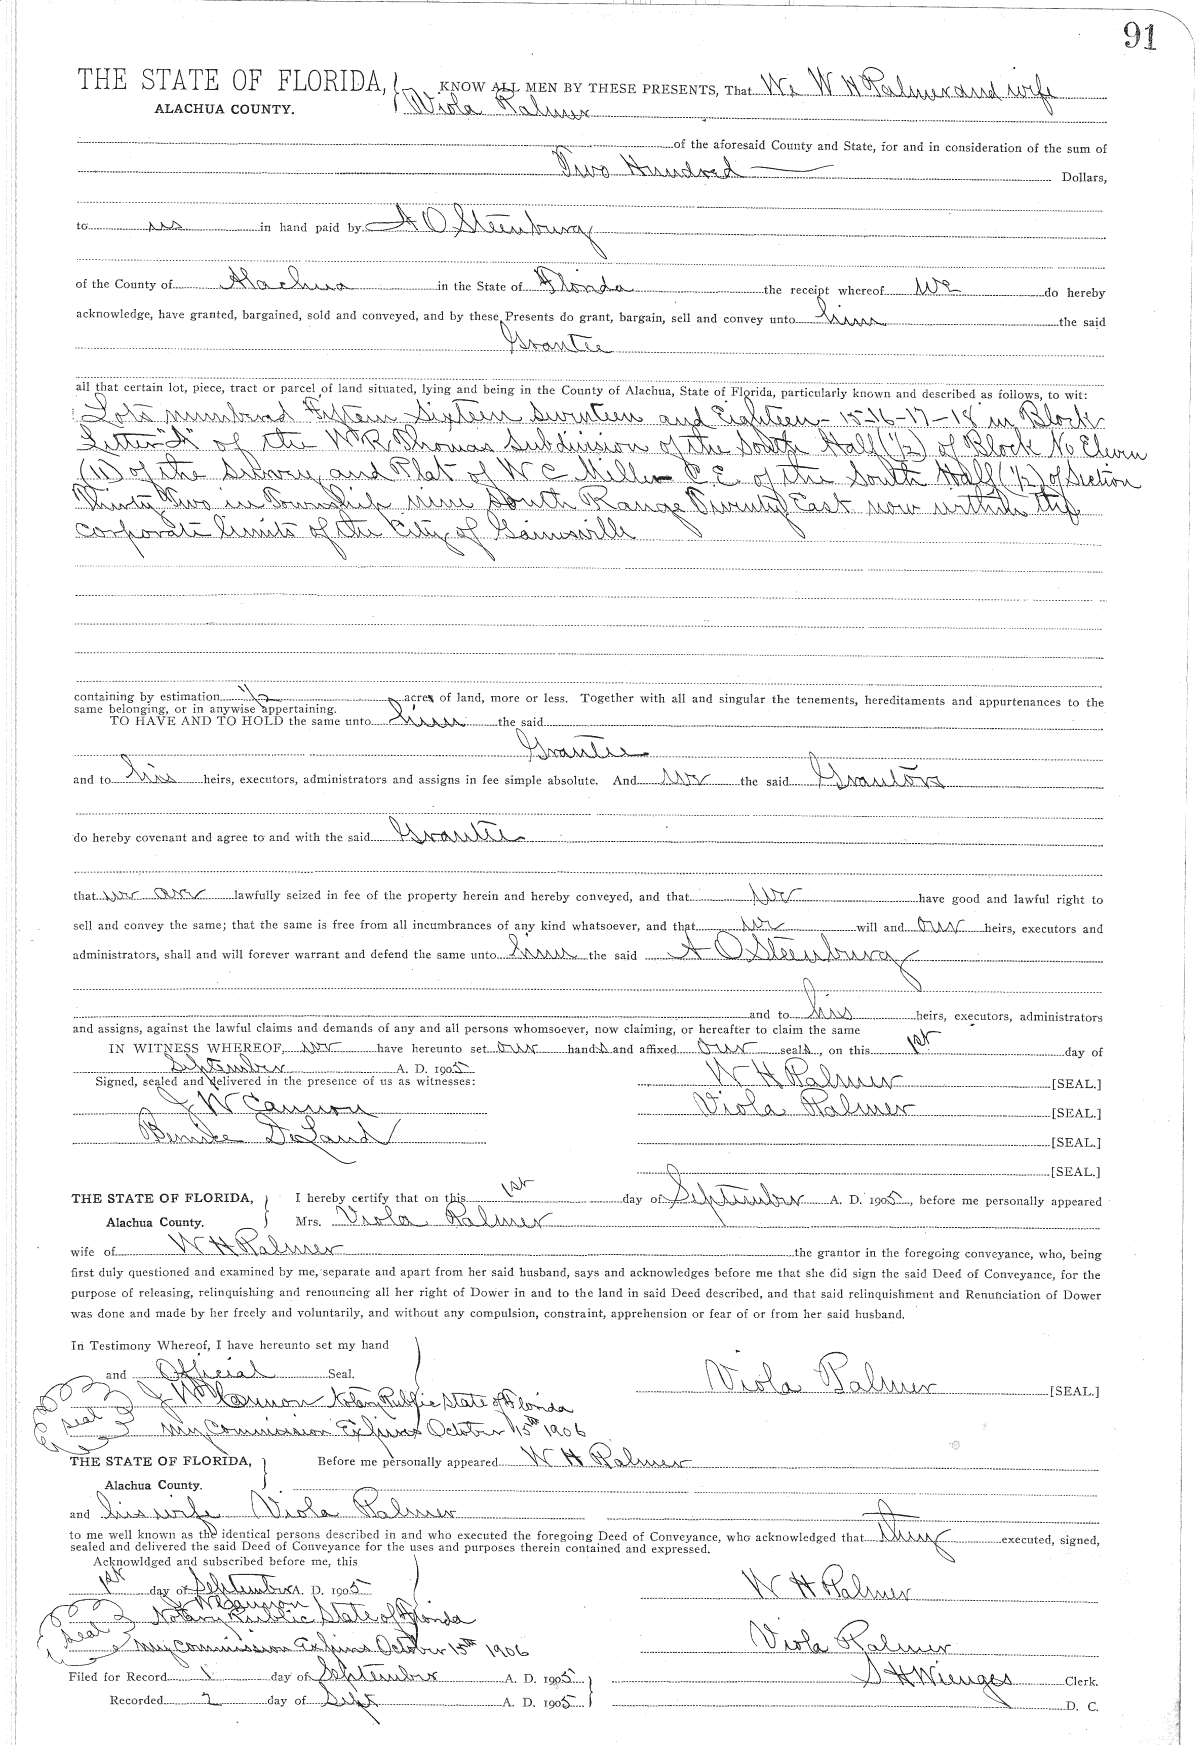 91
THE STATE OF FLORIDA, KNOW ALL MEN BY THESE PRESENTS, That We W H Palmer and wife
ALACHUA COUNTY. Viola Palmer
of the aforesaid County and State, for and in consideration of the sum of
Two Hundred Dollars,
to us in hand paid by A O Steenburg
of the County of Alachua in the State of Florida the receipt whereof we do hereby
acknowledge, have granted, bargained, sold and conveyed, and by these Presents do grant, bargain, sell and convey unto him the said
Grantee
all that certain lot, piece, tract or parcel of land situated, lying and being in the County of Alachua, State of Florida, particularly known and described as follows, to wit:
Lots numbered Fifteen Sixteen seventeen and Eighteen - 15-16-17-18 in Block
Letter "A" of the W R Thomas Subdivision of the South Half (1/2) of Block No Eleven
(11) of the Survey and Plat of W C Miller C.E. of the South Half (1/2) of Section
Thirty Two in Township nine South Range Twenty East now within the
corporate limits of the City of Gainesville
containing by estimation 1/2 acres of land, more or less. Together with all and singular the tenements, hereditaments and appurtenances to the
same belonging, or in anywise appertaining.
TO HAVE AND TO HOLD the same unto him the said
Grantee
and to his heirs, executors, administrators and assigns in fee simple absolute. And we the said Grantors
do hereby covenant and agree to and with the said Grantee
that we are lawfully seized in fee of the property herein and hereby conveyed, and that we have good and lawful right to
sell and convey the same; that the same is free from all incumbrances of any kind whatsoever, and that we will and our heirs, executors and
administrators, shall and will forever warrant and defend the same unto him the said A O Steenburg
and to his heirs, executors, administrators
and assigns, against the lawful claims and demands of any and all persons whomsoever, now claiming, or hereafter to claim the same
IN WITNESS WHEREOF, we have hereunto set our hands and affixed our seals, on this 1st day of
September A. D. 1905
Signed, sealed and delivered in the presence of us as witnesses: W H Palmer [SEAL.]
J W Cannon Viola Palmer [SEAL.]
Bernice DeLand [SEAL.]
[SEAL.]
THE STATE OF FLORIDA, I hereby certify that on this 1st day of September A. D. 1905, before me personally appeared
Alachua County. Mrs. Viola Palmer
wife of W H Palmer the grantor in the foregoing conveyance, who, being
first duly questioned and examined by me, separate and apart from her said husband, says and acknowledges before me that she did sign the said Deed of Conveyance, for the
purpose of releasing, relinquishing and renouncing all her right of Dower in and to the land in said Deed described, and that said relinquishment and Renunciation of Dower
was done and made by her freely and voluntarily, and without any compulsion, constraint, apprehension or fear of or from her said husband.
In Testimony Whereof, I have hereunto set my hand
and Official Seal. Viola Palmer [SEAL.]
J W Cannon Notary Public State of Florida
Seal My Commission Expires October 15th 1906
THE STATE OF FLORIDA, Before me personally appeared W H Palmer
Alachua County.
and his wife Viola Palmer
to me well known as the identical persons described in and who executed the foregoing Deed of Conveyance, who acknowledged that they executed, signed,
sealed and delivered the said Deed of Conveyance for the uses and purposes therein contained and expressed.
Acknowldged and subscribed before me, this
1st day of September A. D. 1905 W H Palmer
J W Cannon
Notary Public State of Florida
Seal My Commission Expires October 15th 1906 Viola Palmer
Filed for Record 1 day of September A. D. 1905 S H Wienges Clerk.
Recorded 2 day of Sept A. D. 1905 D. C.